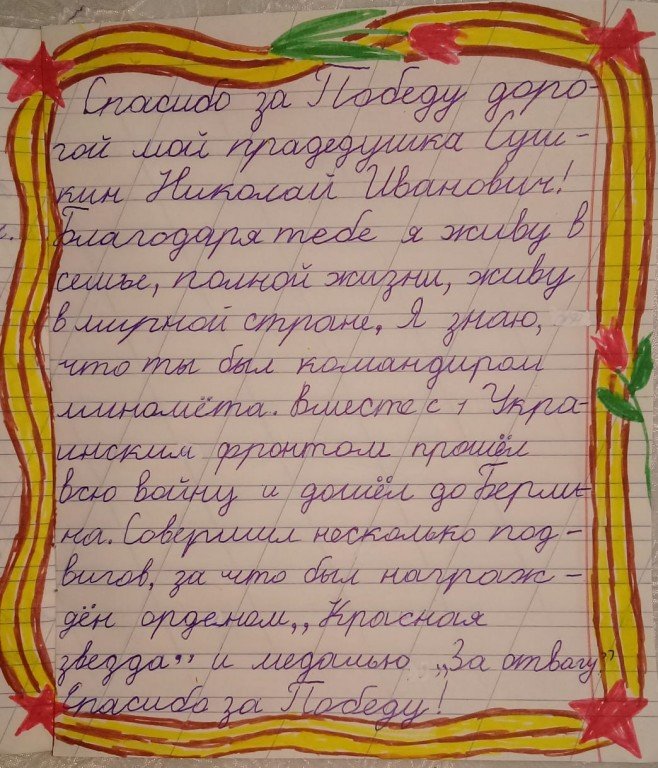 Спасибо за Победу доро-
гой мой прадедушка Суш-
кин Николай Иванович!
Благодаря тебе я живу в
семье, полной жизни, живу
в мирной стране. Я знаю,
что ты был командиром
миномёта. Вместе с 1 Укра-
инским фронтом прошёл
всю войну и дошёл до Берли-
на. Совершил несколько под-
вигов, за что был награж-
дён орденом „Красная
звезда” и медалью „За отвагу”
Спасибо за Победу!